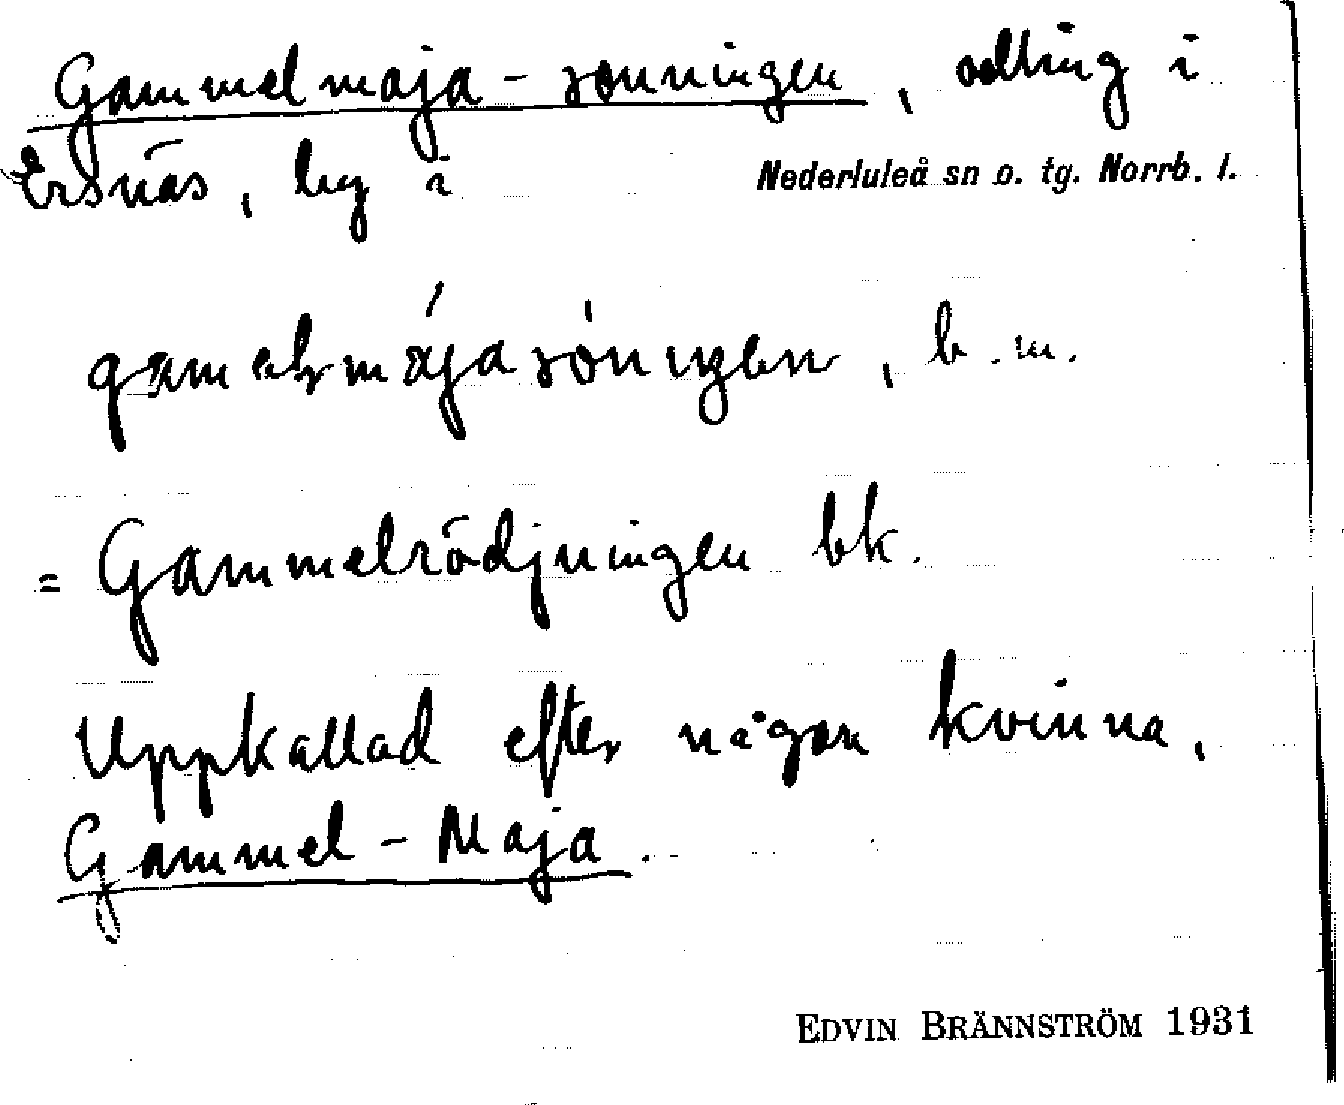 Gammelmaja-sonningen, odling i
Ersnäs, by i Nederluleå sn o. tg. Norrb. l.
b.m.
= Gammelrödjningen bk.
Uppkallad efter någon kvinna,
Gammel-Maja.
EDVIN BRÄNNSTRÖM 1931